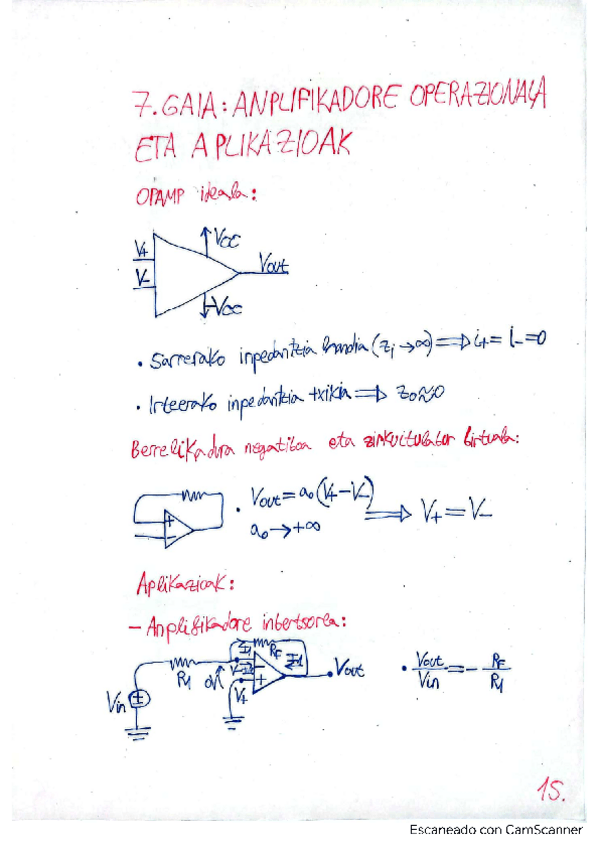 7. GAIA: ANPLIFIKADORE OPERAZIONALA
ETA APLIKAZIOAK
OPAMP ideala:
V+
V-
Vcc
-Vcc
Vout
• Sarrerako inpedantzia handia (Zi → ∞) ⟹ i+ = i- = 0
• Irteerako inpedantzia txikia ⟹ Zo ≈ 0
Berrelikadura negatiboa eta zirkuitulabur birtuala:
+
-
• Vout = a₀ (V+ - V-)
a₀ → +∞
⟹ V+ = V-
Aplikazioak:
- Anplifikadore inbertsorea:
Vin
R1
0V
I1
RF
V-
V+
-
+
Vout
• Vout/Vin = - RF/R1
15.
Escaneado con CamScanner